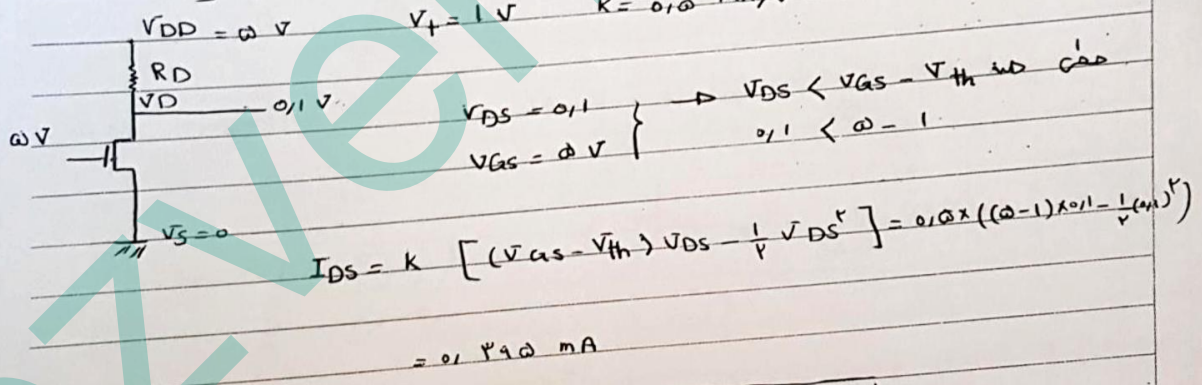 VDD = ۵ V   Vt = 1 V   K = ۰,۵
RD
VD   ۰,۱ V
۵ V
VDS = ۰,۱
VGS = ۵ V
→ VDS < VGS - Vth
۰,۱ < ۵ - ۱
VS = ۰
IDS = K [(VGS - Vth) VDS - ۱/۲ VDS^۲] = ۰,۵ × ((۵-۱) × ۰,۱ - ۱/۲ (۰,۱)^۲)
= ۰,۳۹۵ mA